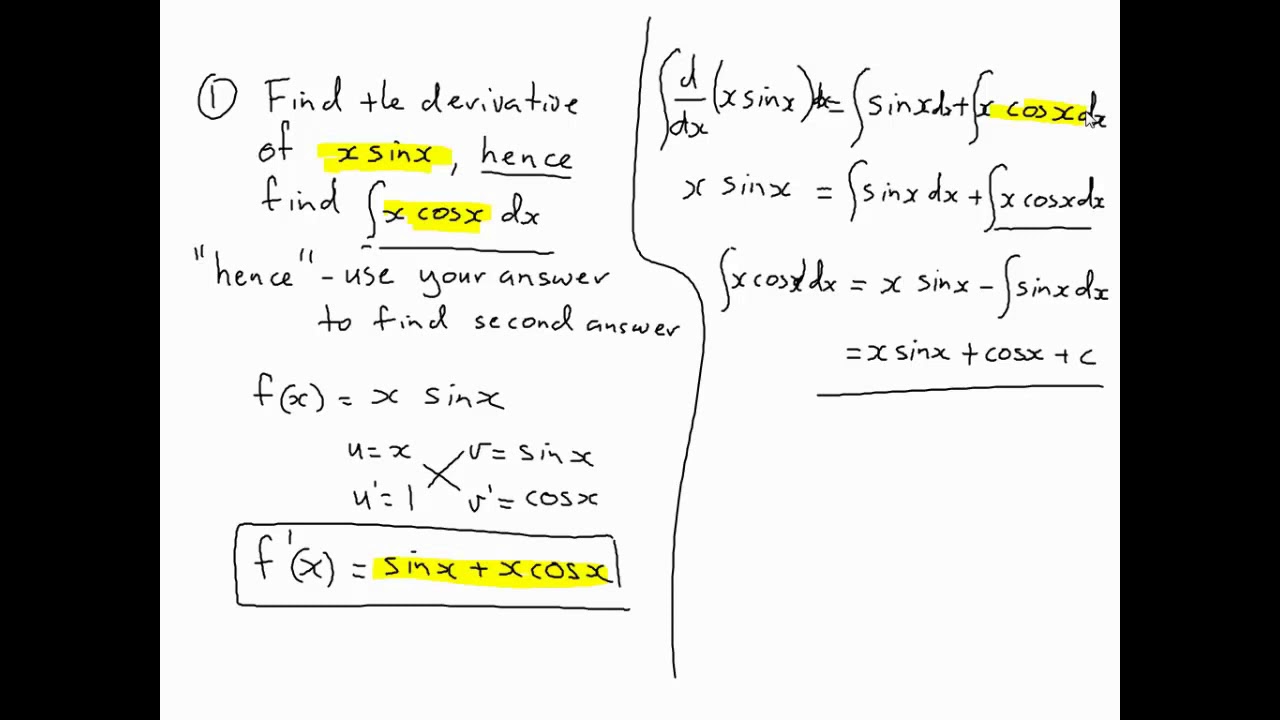 ① Find the derivative
of x sinx, hence
find ∫x cosx dx
"hence" - use your answer
to find second answer
f(x) = x sinx
u = x v = sinx
u' = 1 v' = cosx
f'(x) = sinx + x cosx
∫ d/dx (x sinx) dx = ∫sinx dx + ∫x cosx dx
x sinx = ∫sinx dx + ∫x cosx dx
∫x cosx dx = x sinx - ∫sinx dx
= x sinx + cosx + c